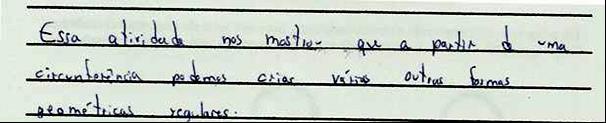 Essa atividade nos mostrou que a partir de uma
circunferência podemos criar várias outras formas
geométricas regulares.